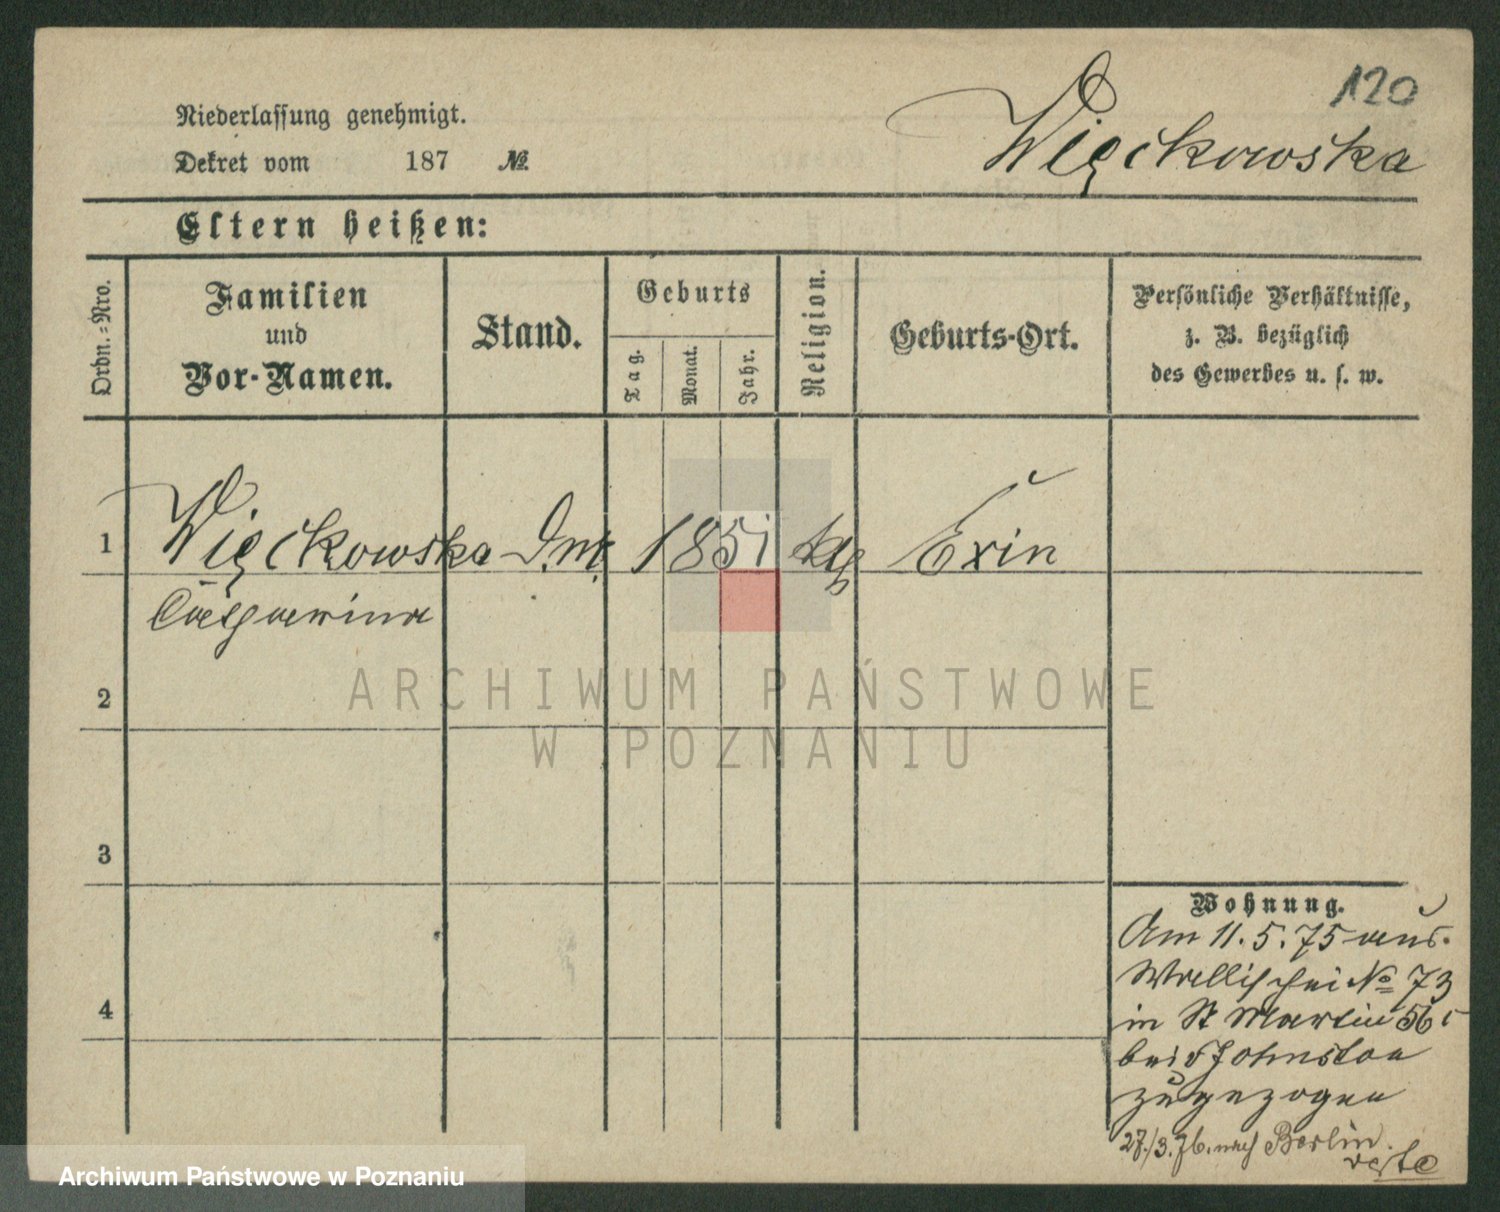 120
Więckowska
Niederlassung genehmigt.
Dekret vom 187 №.
Eltern heißen:
Ordn.=Nro.
Familien
und
Vor-Namen.
Stand.
Geburts
Tag.
Monat.
Jahr.
Religion.
Geburts-Ort.
Persönliche Verhältnisse,
z. B. bezüglich
des Gewerbes u. s. w.
1 Więckowska 1851 Exin
2
3
4
Wohnung.
Am 11. 5. 75 aus
Wallischei № 73
in St Martin 56
bei Johnston
zugezogen
27./3. 76. nach Berlin.
ARCHIWUM PAŃSTWOWE
W POZNANIU
Archiwum Państwowe w Poznaniu